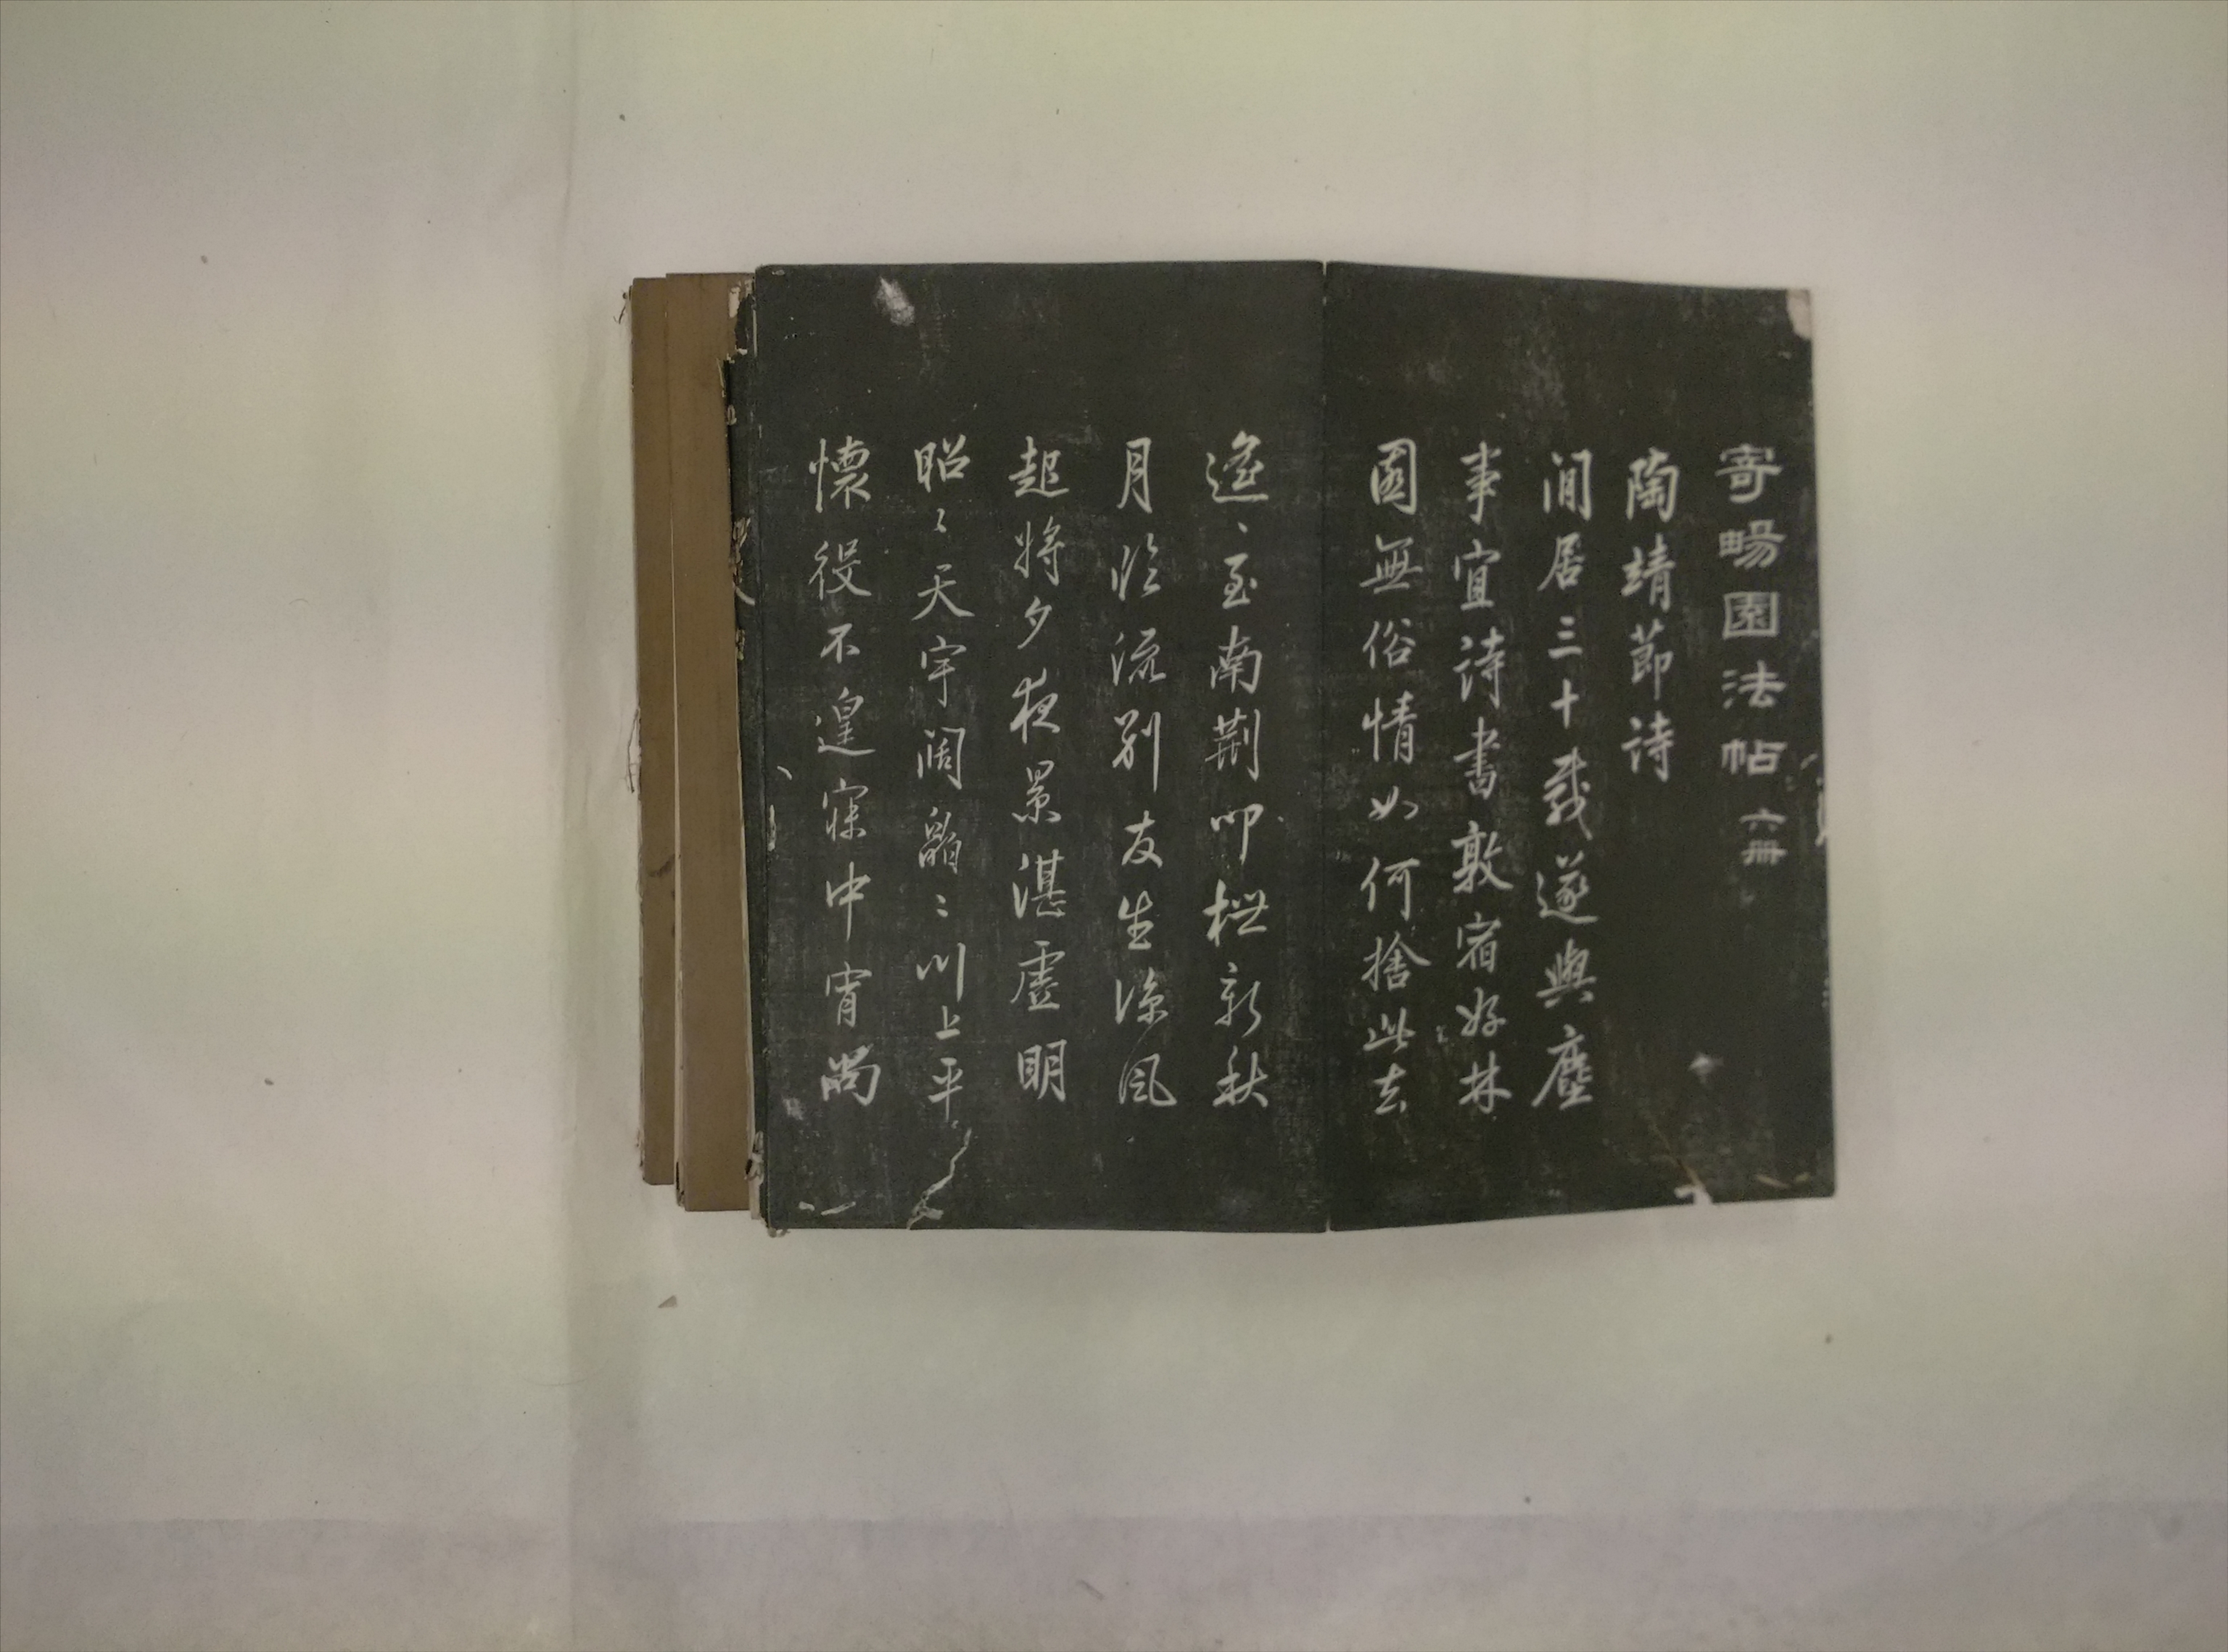 寄暢園法帖 六册
陶靖節詩
閒居三十載遂與塵
事宜詩書敦宿好林
園無俗情如何捨此去
遥〻至南荆叩枻新秋
月臨流别友生涼風
起將夕夜景湛虚明
昭〻天宇闊皛〻川上平
懷役不遑寐中宵尚